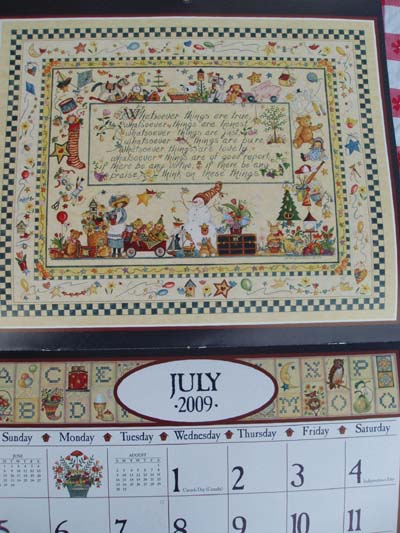 Whatsoever things are true,
whatsoever things are honest,
whatsoever things are just,
whatsoever things are pure,
whatsoever things are lovely,
whatsoever things are of good report;
if there be any virtue, & if there be any
praise, think on these things.
A C E N P
B D M O
JULY
·2009·
Sunday Monday Tuesday Wednesday Thursday Friday Saturday
JUNE AUGUST
1 2 3 4
Canada Day (Canada) Independence Day
5 6 7 8 9 10 11